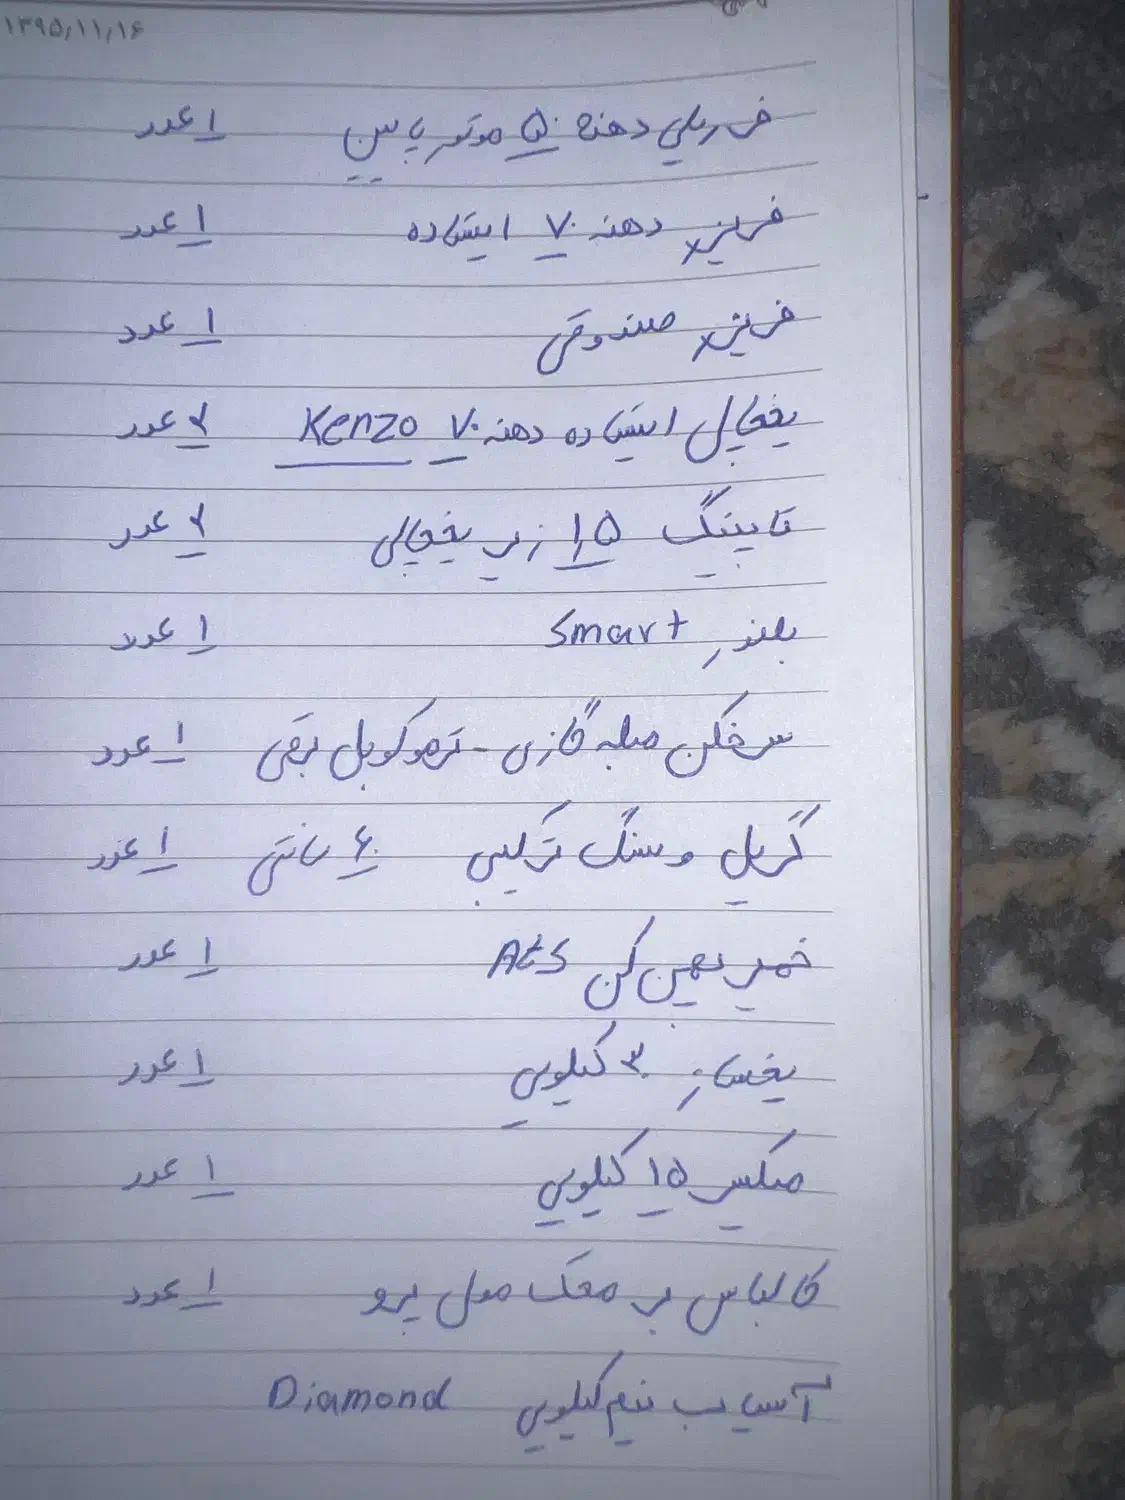 ۱۳۹۵/۱۱/۱۶
فر ریلی دهنه ۵۰ موتور پایین ۱ عدد
فریزر دهنه ۷۰ ایستاده ۱ عدد
فریزر صندوقی ۱ عدد
یخچال ایستاده دهنه ۷۰ Kenzo ۲ عدد
تاپینگ ۱٫۵ زیر یخچالی ۲ عدد
بلندر Smart ۱ عدد
سرخکن میله گازی - ترموکوپل برقی ۱ عدد
گریل و سنگ ترکیبی ۶۰ سانتی ۱ عدد
خمیر پهن کن Ats ۱ عدد
یخساز ۳۰ کیلویی ۱ عدد
میکسر ۱۵ کیلویی ۱ عدد
کالباس بر مدل ۱ عدد
آسیاب نیم کیلویی Diamond